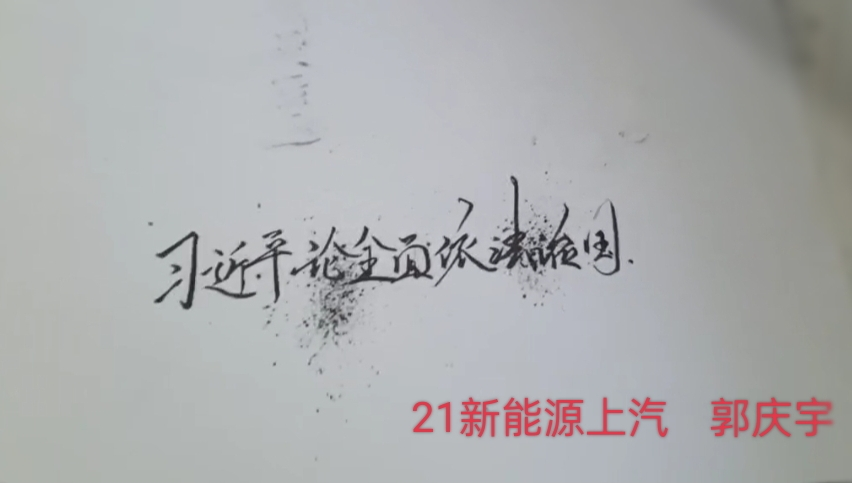 习近平论全面依法治国.
21新能源上汽 郭庆宇